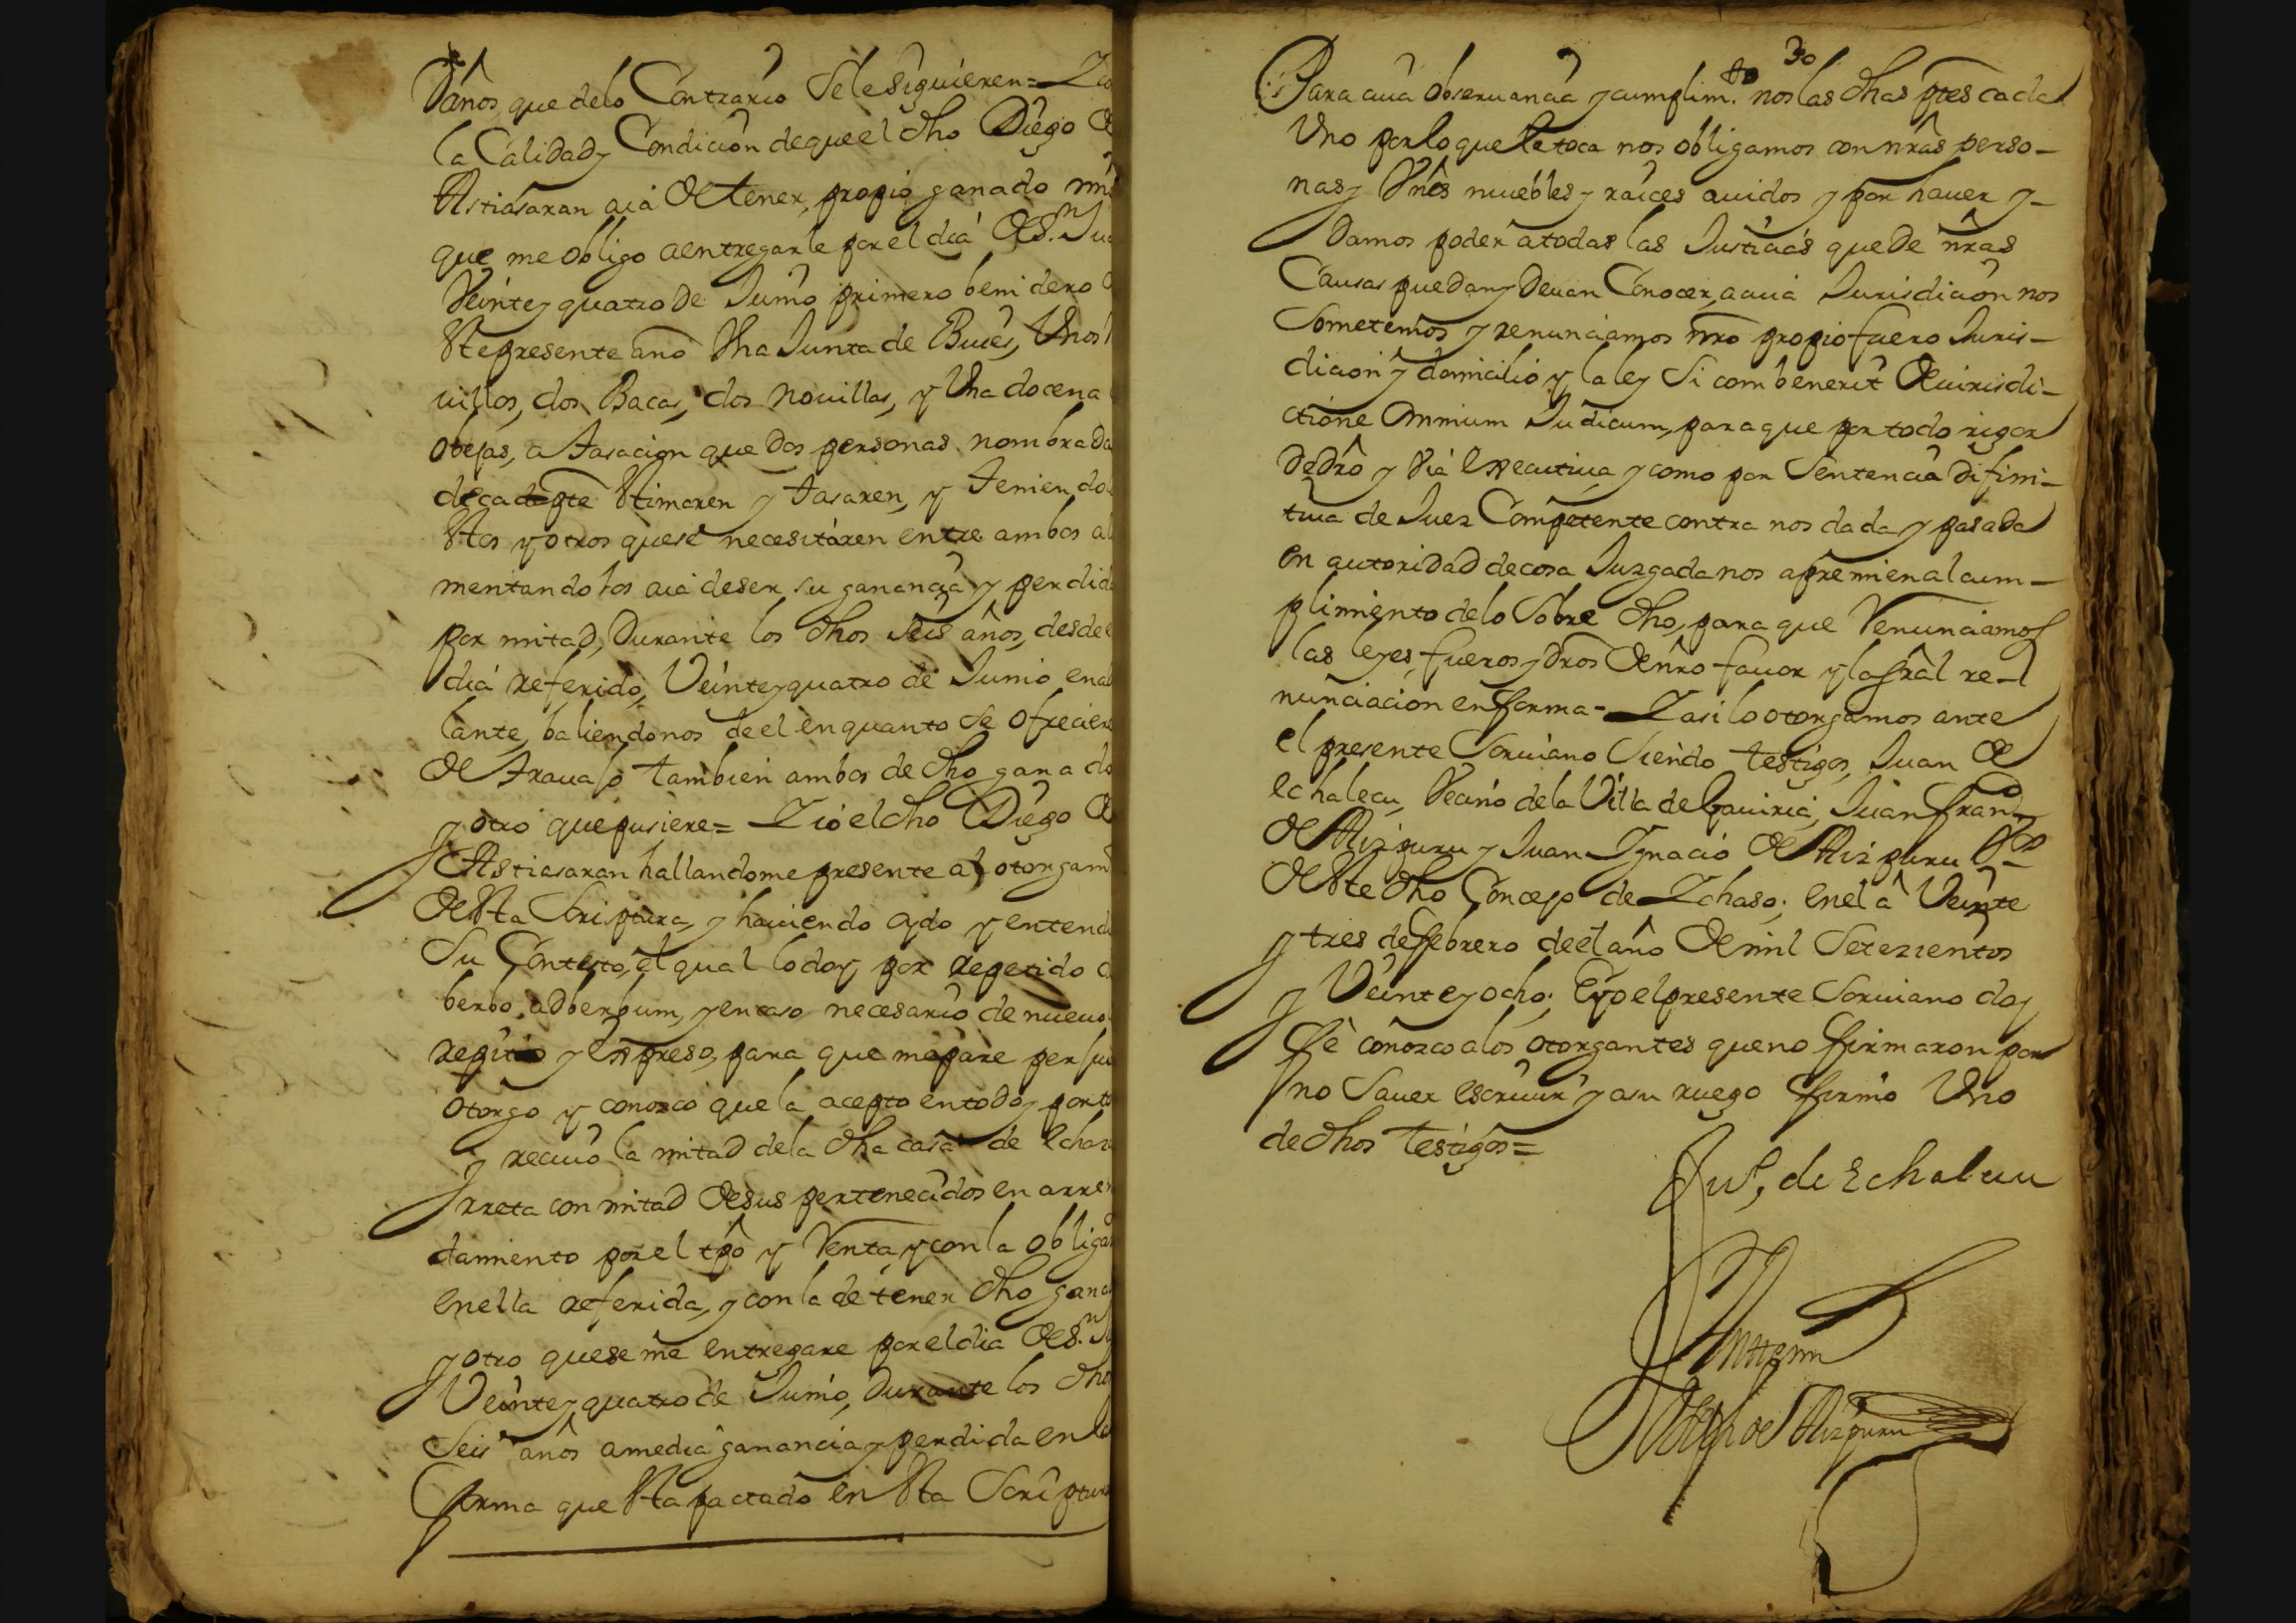 Daños que de lo Contrario se le siguieren = Y co
la Calidad y Condicion de que el dho Diego de
Astiasaran aia de tener, propio ganado mio
que me obligo a entregarle por el dia de S.n Jua
Veinte y quatro de Junio primero benidero de
este presente año Vna Junta de Bues, Vnos
uillos, dos Bacas, dos nouillas, y Vna docena
obejas, a tasacion que dos personas nombrada
de cada pte estimaren y tasaren, y teniendo
estos y otros que se necesitaren entre ambos al
mentandolos aia de ser su ganancia y perdida
por mitad, Durante los dhos seis años, desde e
dia referido, Veinte y quatro de Junio en a
lante, baliendonos de el en quanto se ofreciere
de trauajo tambien ambos de dho ganado
y otro que pusiere = Y io el dho Diego de
Astiasaran hallandome presente al otorgam
de esta Scriptura, y hauiendo oydo y entend
Su Contesto, el qual lo doy por repetido de
berbo, ad berbum, y en caso necesario de nueuo
repito y expreso, para que me pare perjui
otorgo y conosco que la acepto en todo y por to
y reciuo la mitad de la dha casa de Echaz
rreta con mitad de sus pertenecidos en arren
damiento por el tpo y Renta y con la obliga
en ella referida, y con la de tener dho gana
y otro que se me entregare por el dia de S.n Ju
Veinte y quatro de Junio, Durante los dho
Seis años a media ganancia y perdida en la
forma que esta pactado en esta Scriptura
30
Para cuia obseruancia y cumplim.to nos las dhas ptes cada
Vno por lo que le toca nos obligamos con nras perso-
nas y Vnes muebles y raices auidos y por hauer y-
Damos poder a todas las Justicias que de nras
Causas puedan y Deuan Conocer, a cuia Jurisdicion nos
Sometemos y renunciamos nro propio fuero Juris-
dicion y domicilio y la ley Si combenerit de iurisdi-
ctione omnium Judicum, para que por todo rigor
De dro y Via executiua y como por Sentencia difini-
tiua de Juez Competente contra nos dada y pasada
en autoridad de cosa Juzgada nos apremien al cum-
plimiento de lo Sobre dho, para que Renunciamos
las leyes, fueros y dros de nro fauor y la gral re-
nunciacion en forma = Y asi lo otorgamos ante
el presente Scriuano siendo testigos, Juan de
echalecu, Vecino de la Villa de Gauiria, Juan Fran.co
de Aizpuru y Juan Ygnacio de Aizpuru V.os
de este dho Concejo de Ychaso; en el a Veinte
y tres de febrero de el año de mil Setezientos
y Veinte y ocho; E yo el presente Scriuano doy
fe conozco a los otorgantes que no firmaron por
no Sauer escriuir y a su ruego firmo Vno
de dhos testigos =
Ju.o de Echalecu
Ante mi
Joseph de Aizpuru